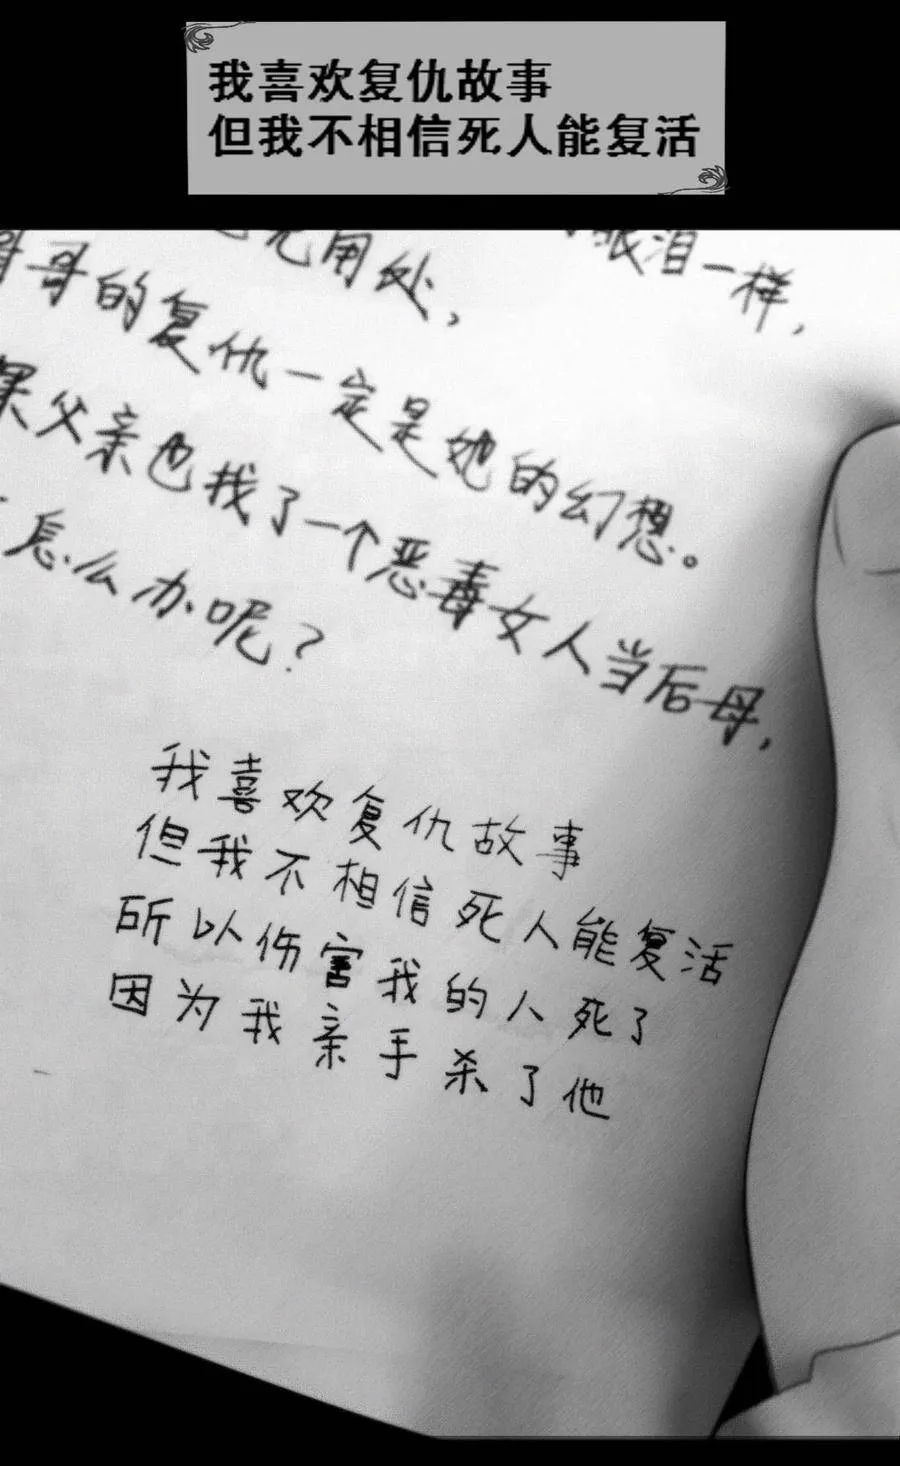 我喜欢复仇故事
但我不相信死人能复活
眼泪一样，
无用处，
哥哥的复仇一定是她的幻想。
果父亲也找了一个恶毒女人当后母，
怎么办呢？
我喜欢复仇故事
但我不相信死人能复活
所以伤害我的人死了
因为我亲手杀了他